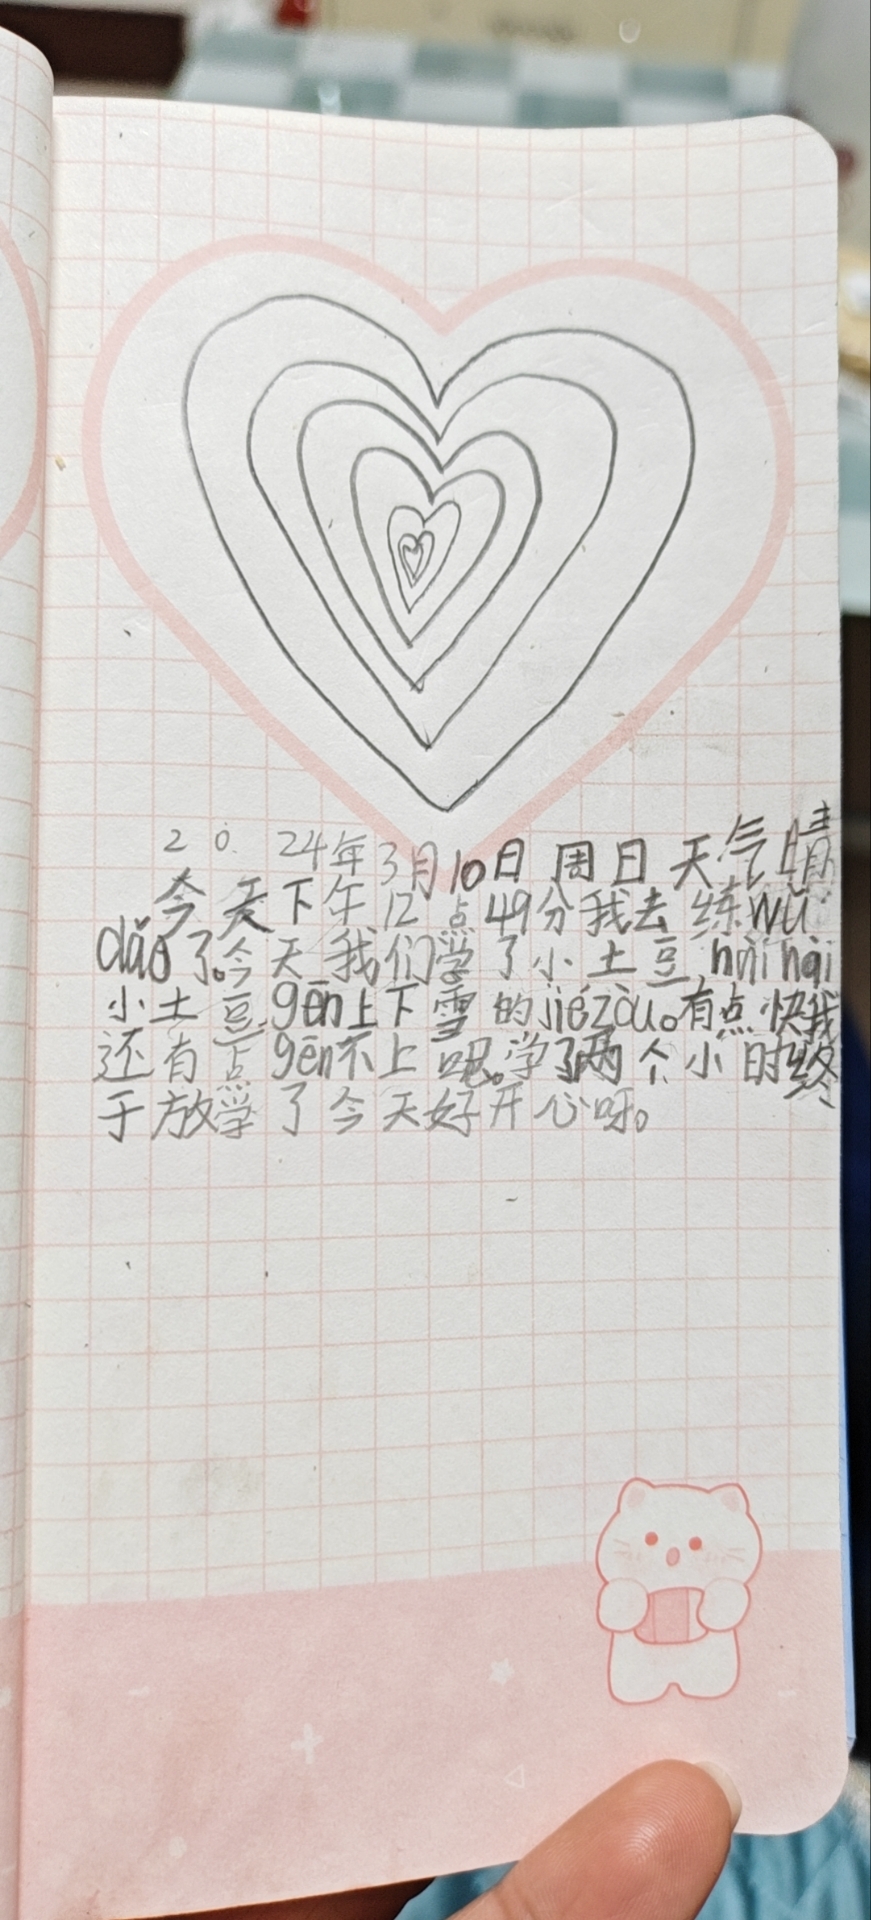 2024年3月10日 周日 天气晴
今天下午12点49分我去练wǔ
dǎo了。今天我们学了小土豆,
小土豆gēn上下雪的jiézòu。有点快我
还有点gēn不上呢。学了两个小时终
于放学了今天好开心呀。